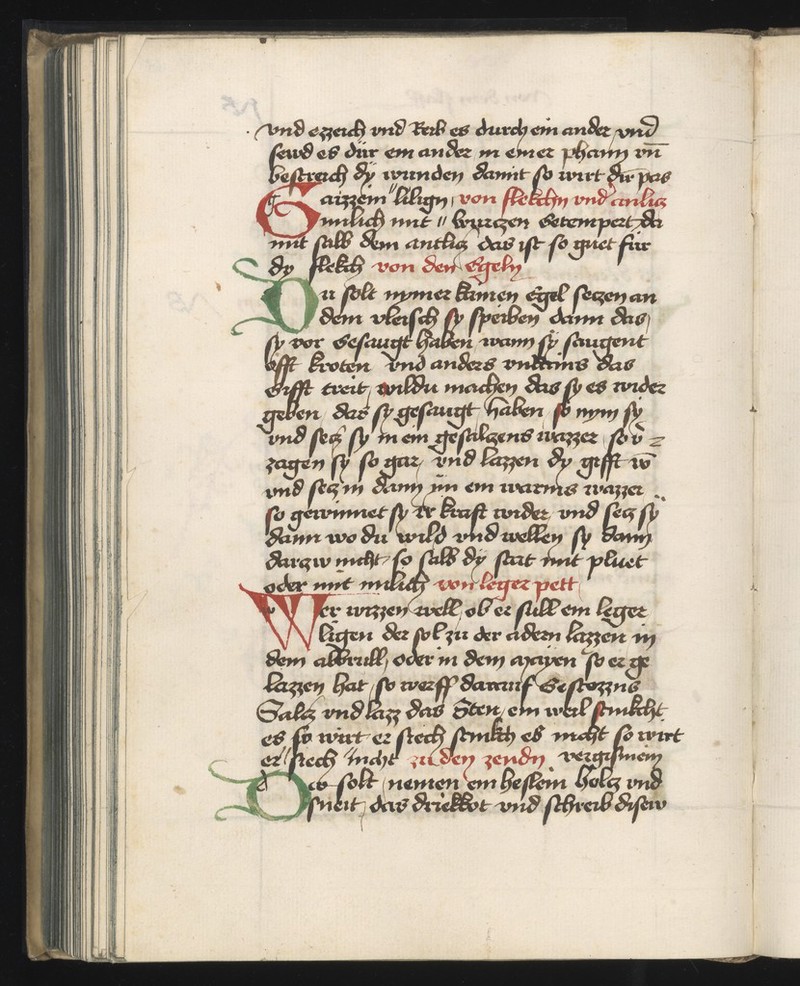 vnd ezzeich vnd Reib es durch ein ander vnd
sewd es dür ein ander in einer phann vn̄
bestreich dy wunden damit so wirt dir pas
Gaizzein lilign von flekchn vnd anlicz
milich mit wurczen getempert da
mit salb dem antlicz das ist so guet für
dy flekch von den Egeln
Du solt nymer kainen Egel seczen an
dem vleisch sy speiben dann das
sy vor gesaugt haben wann sy saugent
offt kroten vnd anders das
gifft treit wildu machen das sy es wider
geben das sy gesaugt haben so nym sy
vnd secz sy in ein gesalczens wazzer so v̄
zagen sy so gar vnd lazzen dy gifft
vnd secz in dann in ein warms wazzer
so gewinnet sy ir kraft wider vnd secz sy
dann wo du wild vnd wellen sy dann
darczw nicht so salb dy stat mit pluet
oder mit milich von leger pett
Wer wizzen well ob er süll ein leger
ligen der sol zu der adern lazzen in
dem abbrull oder in dem mayen so er ge
lazzen hat so werff darauf gestozzns
Salcz vnd lazz das sten ein weil stinkcht
es so wirt er siech stinkch es nicht so wirt
er siech nicht zu den zendn vergismein
Dw solt nemen ein heslein holcz vnd
sneit das driekkot vnd schreib disew